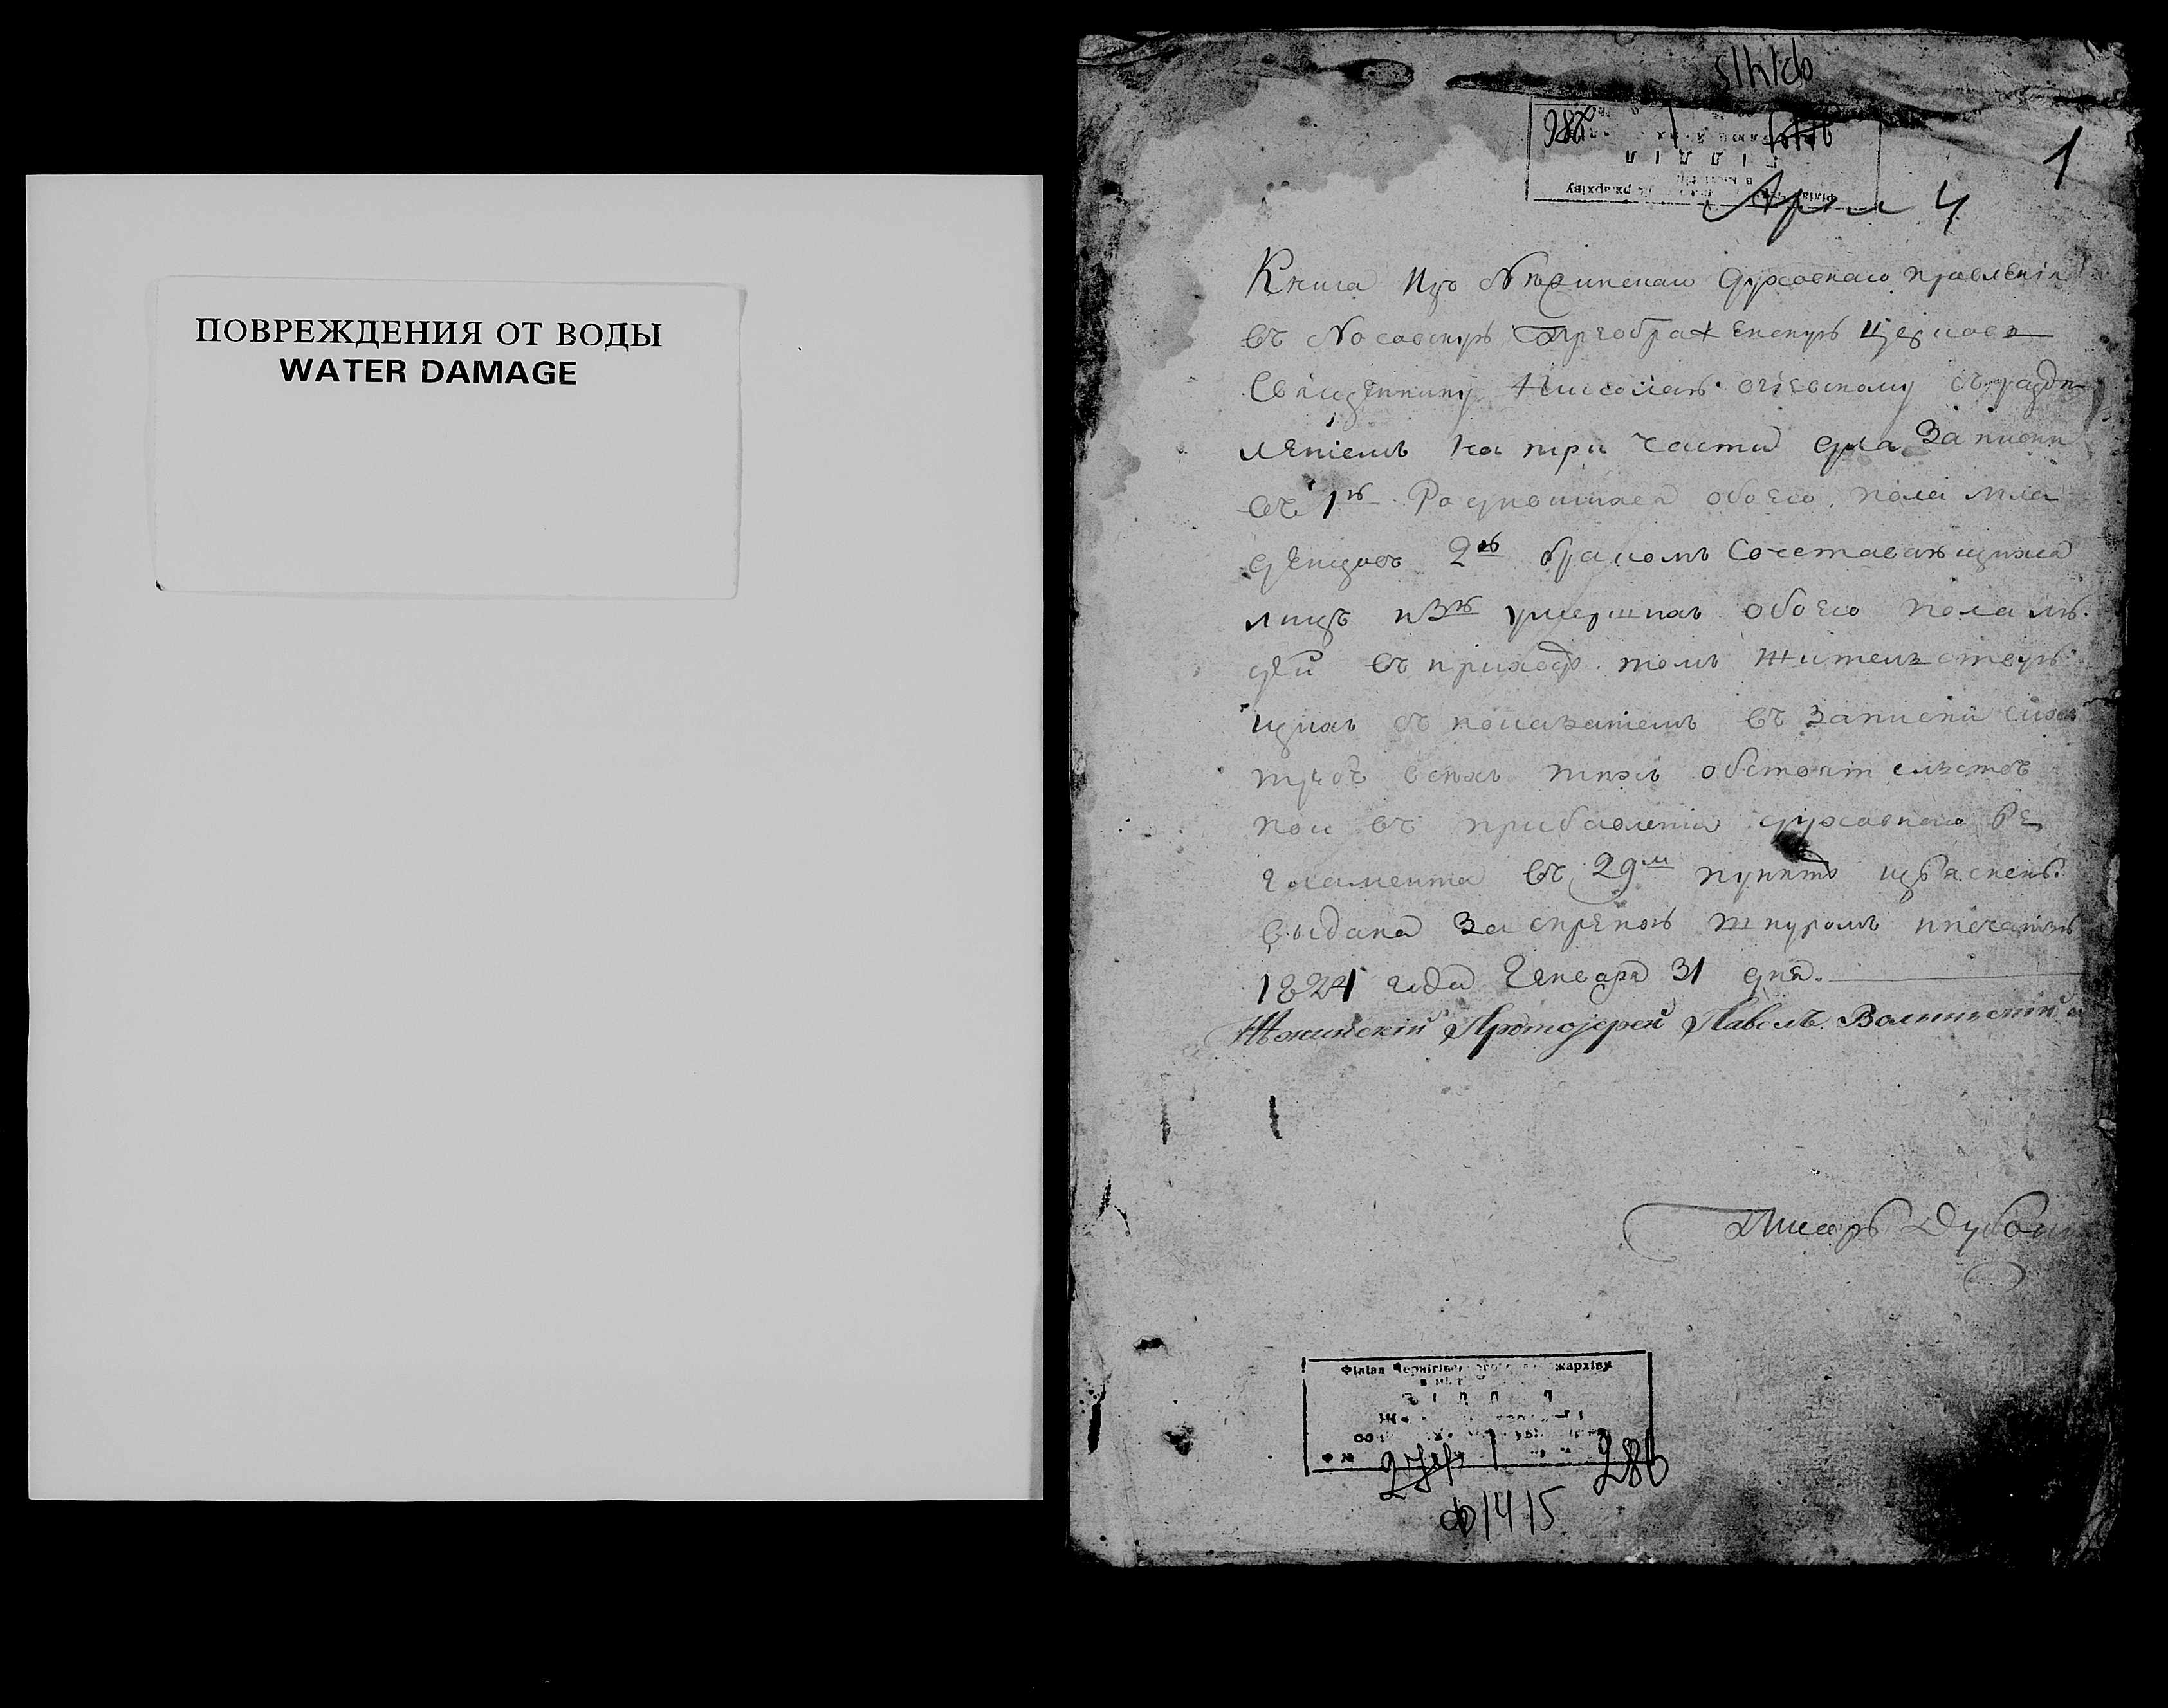 ПОВРЕЖДЕНИЯ ОТ ВОДЫ
WATER DAMAGE
ф1415
286
1
Арк 4
Книга Изъ Нѣжинскаго Духовнаго правленія
въ Носовскую Преображенскую Церковь
Священнику Николаю въ раздѣ
леніемъ на три части для Записки
въ 1й Родившихся обоего пола мла
денцовъ 2й бракомъ Сочетавающихся
лицъ и 3й умершихъ обоего пола лю
дей въ приходѣ томъ жительствую
щихъ съ показаніемъ въ Записки сихъ
трехъ всѣхъ тѣхъ обстоятельствъ
кои въ прибавленіи духовнаго Ре
гламента въ 29м пунктѣ изъяснены.
выдана За скрепою шнуромъ и печатью
1824 года Генваря 31 дня.
Нѣжинскій Протоіерей Павелъ Волынскій
Писарь
Філіал Чернігівського держархіву
286
ф1415